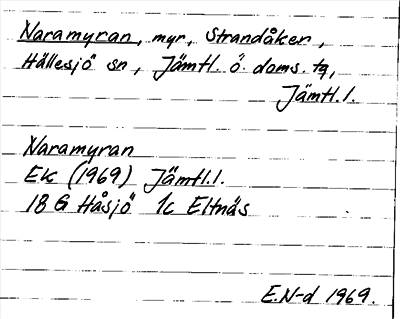 Naramyran, myr, Strandåker,
Hällesjö sn, Jämtl. ö. doms. tg,
Jämtl.l.
Naramyran
Ek (1969) Jämtl.l.
18 G Håsjö 1c Eltnäs
E.N-d 1969.